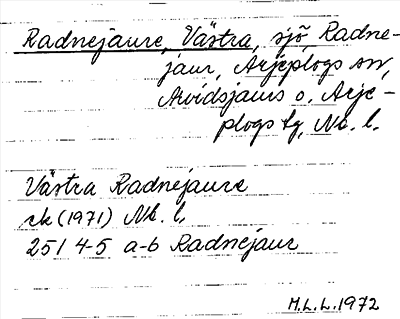 Radnejaure, Västra, sjö, Radne-
jaur, Arjeplogs sn,
Arvidsjaurs o. Arje-
plogs tg, Nb. l.
Västra Radnejaure
ek (1971) Nb. l.
25I 4-5 a-b Radnejaur
M.L.L. 1972